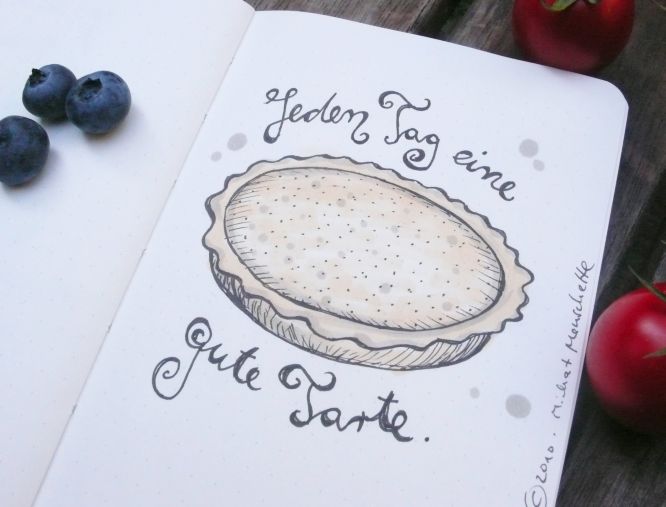 Jeden Tag eine
gute Tarte.
© 2010. Michat Menschette